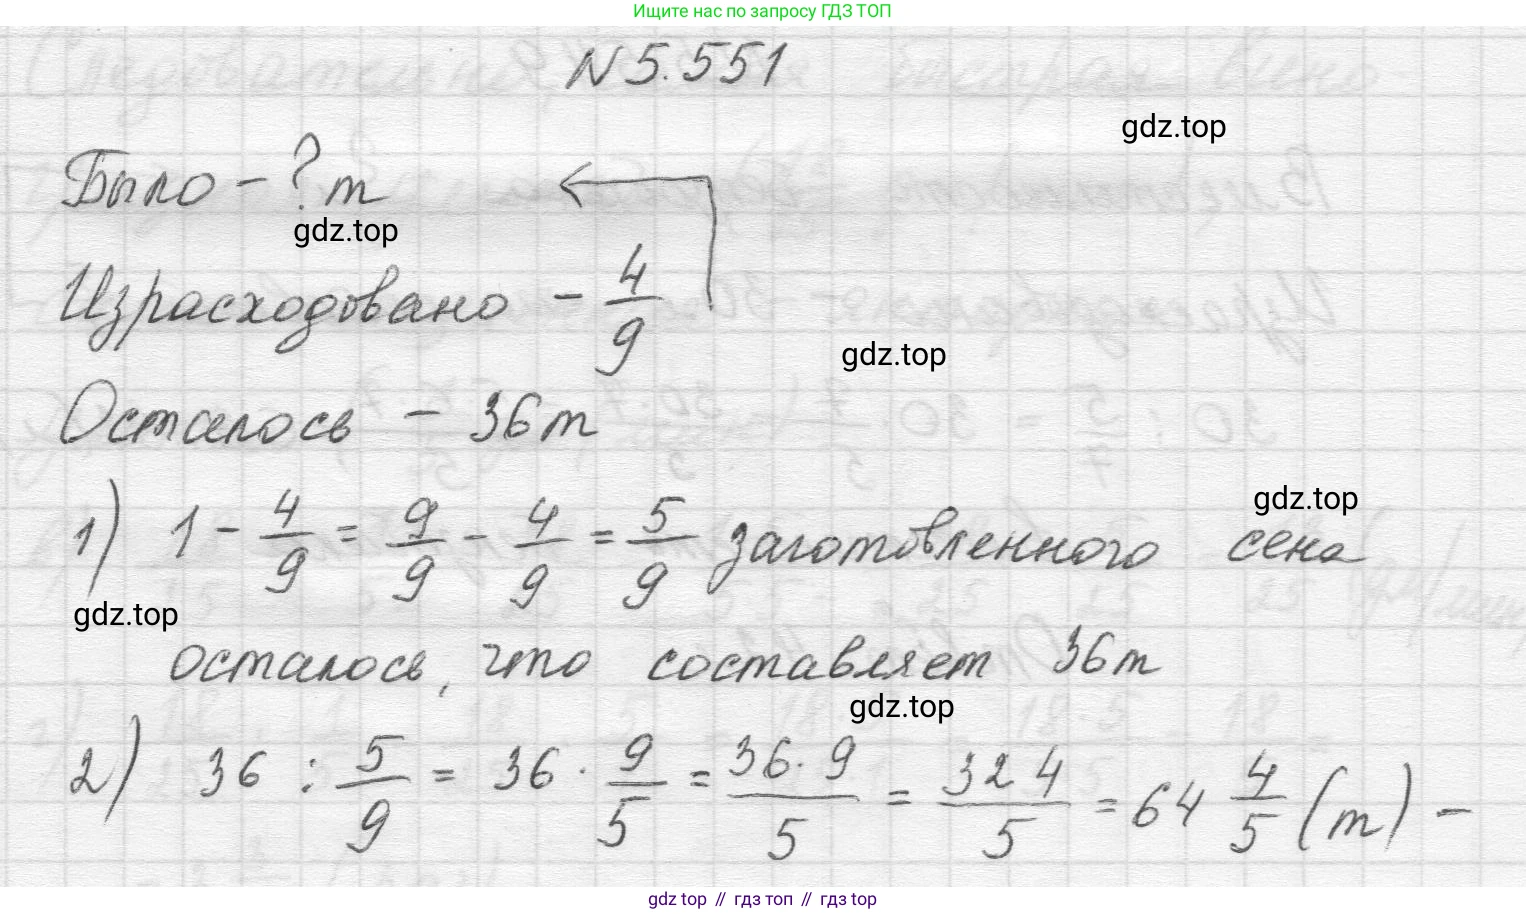 Ищите нас по запросу ГДЗ ТОП
N 5.551
gdz.top
Было - ? т
gdz.top
Израсходовано - 4/9
gdz.top
Осталось - 36 т
gdz.top
1) 1 - 4/9 = 9/9 - 4/9 = 5/9 заготовленного сена
gdz.top
осталось, что составляет 36 т
gdz.top
2) 36 : 5/9 = 36 · 9/5 = 36 · 9/5 = 324/5 = 64 4/5 (т) -
gdz top // гдз топ // гдз top